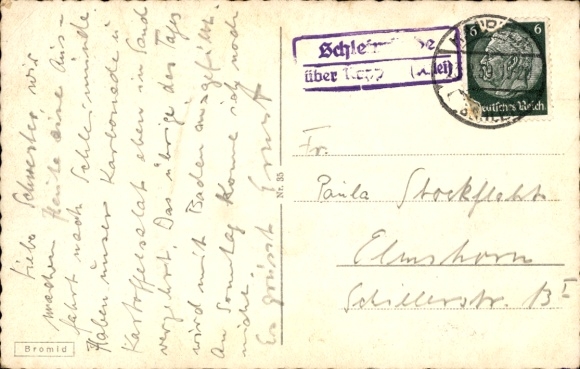 Liebe Schwester, wir
machen heute eine Aus-
fahrt nach Schleimünde.
Haben unser Karbonade u.
Kartoffelsalat eben im Sande
verzehrt. Das übrige des Tages
wird mit Baden ausgefüllt.
An Sonntag komme ich noch
nicht.
Es grüsst Ernst
Bromid
Nr. 35
Schleimünde
über Kapp (Schlei)
6 6
Deutsches Reich
Fr.
Paula Stockfleth
Elmshorn
Schillerstr. B I